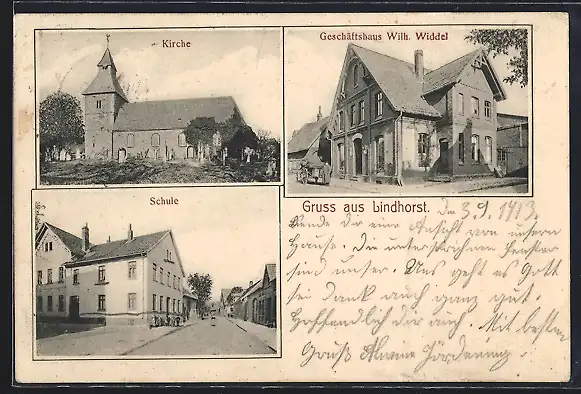 Kirche
Geschäftshaus Wilh. Widdel
Schule
Gruss aus Lindhorst. Den 3.9.1913.
Sende dir eine Ansicht von unsern
Hause. Die unterstrichnen Fenster
sind unser. Uns geht es Gott
sei Dank auch ganz gut.
Hoffendlich dir auch. Mit besten
Gruß